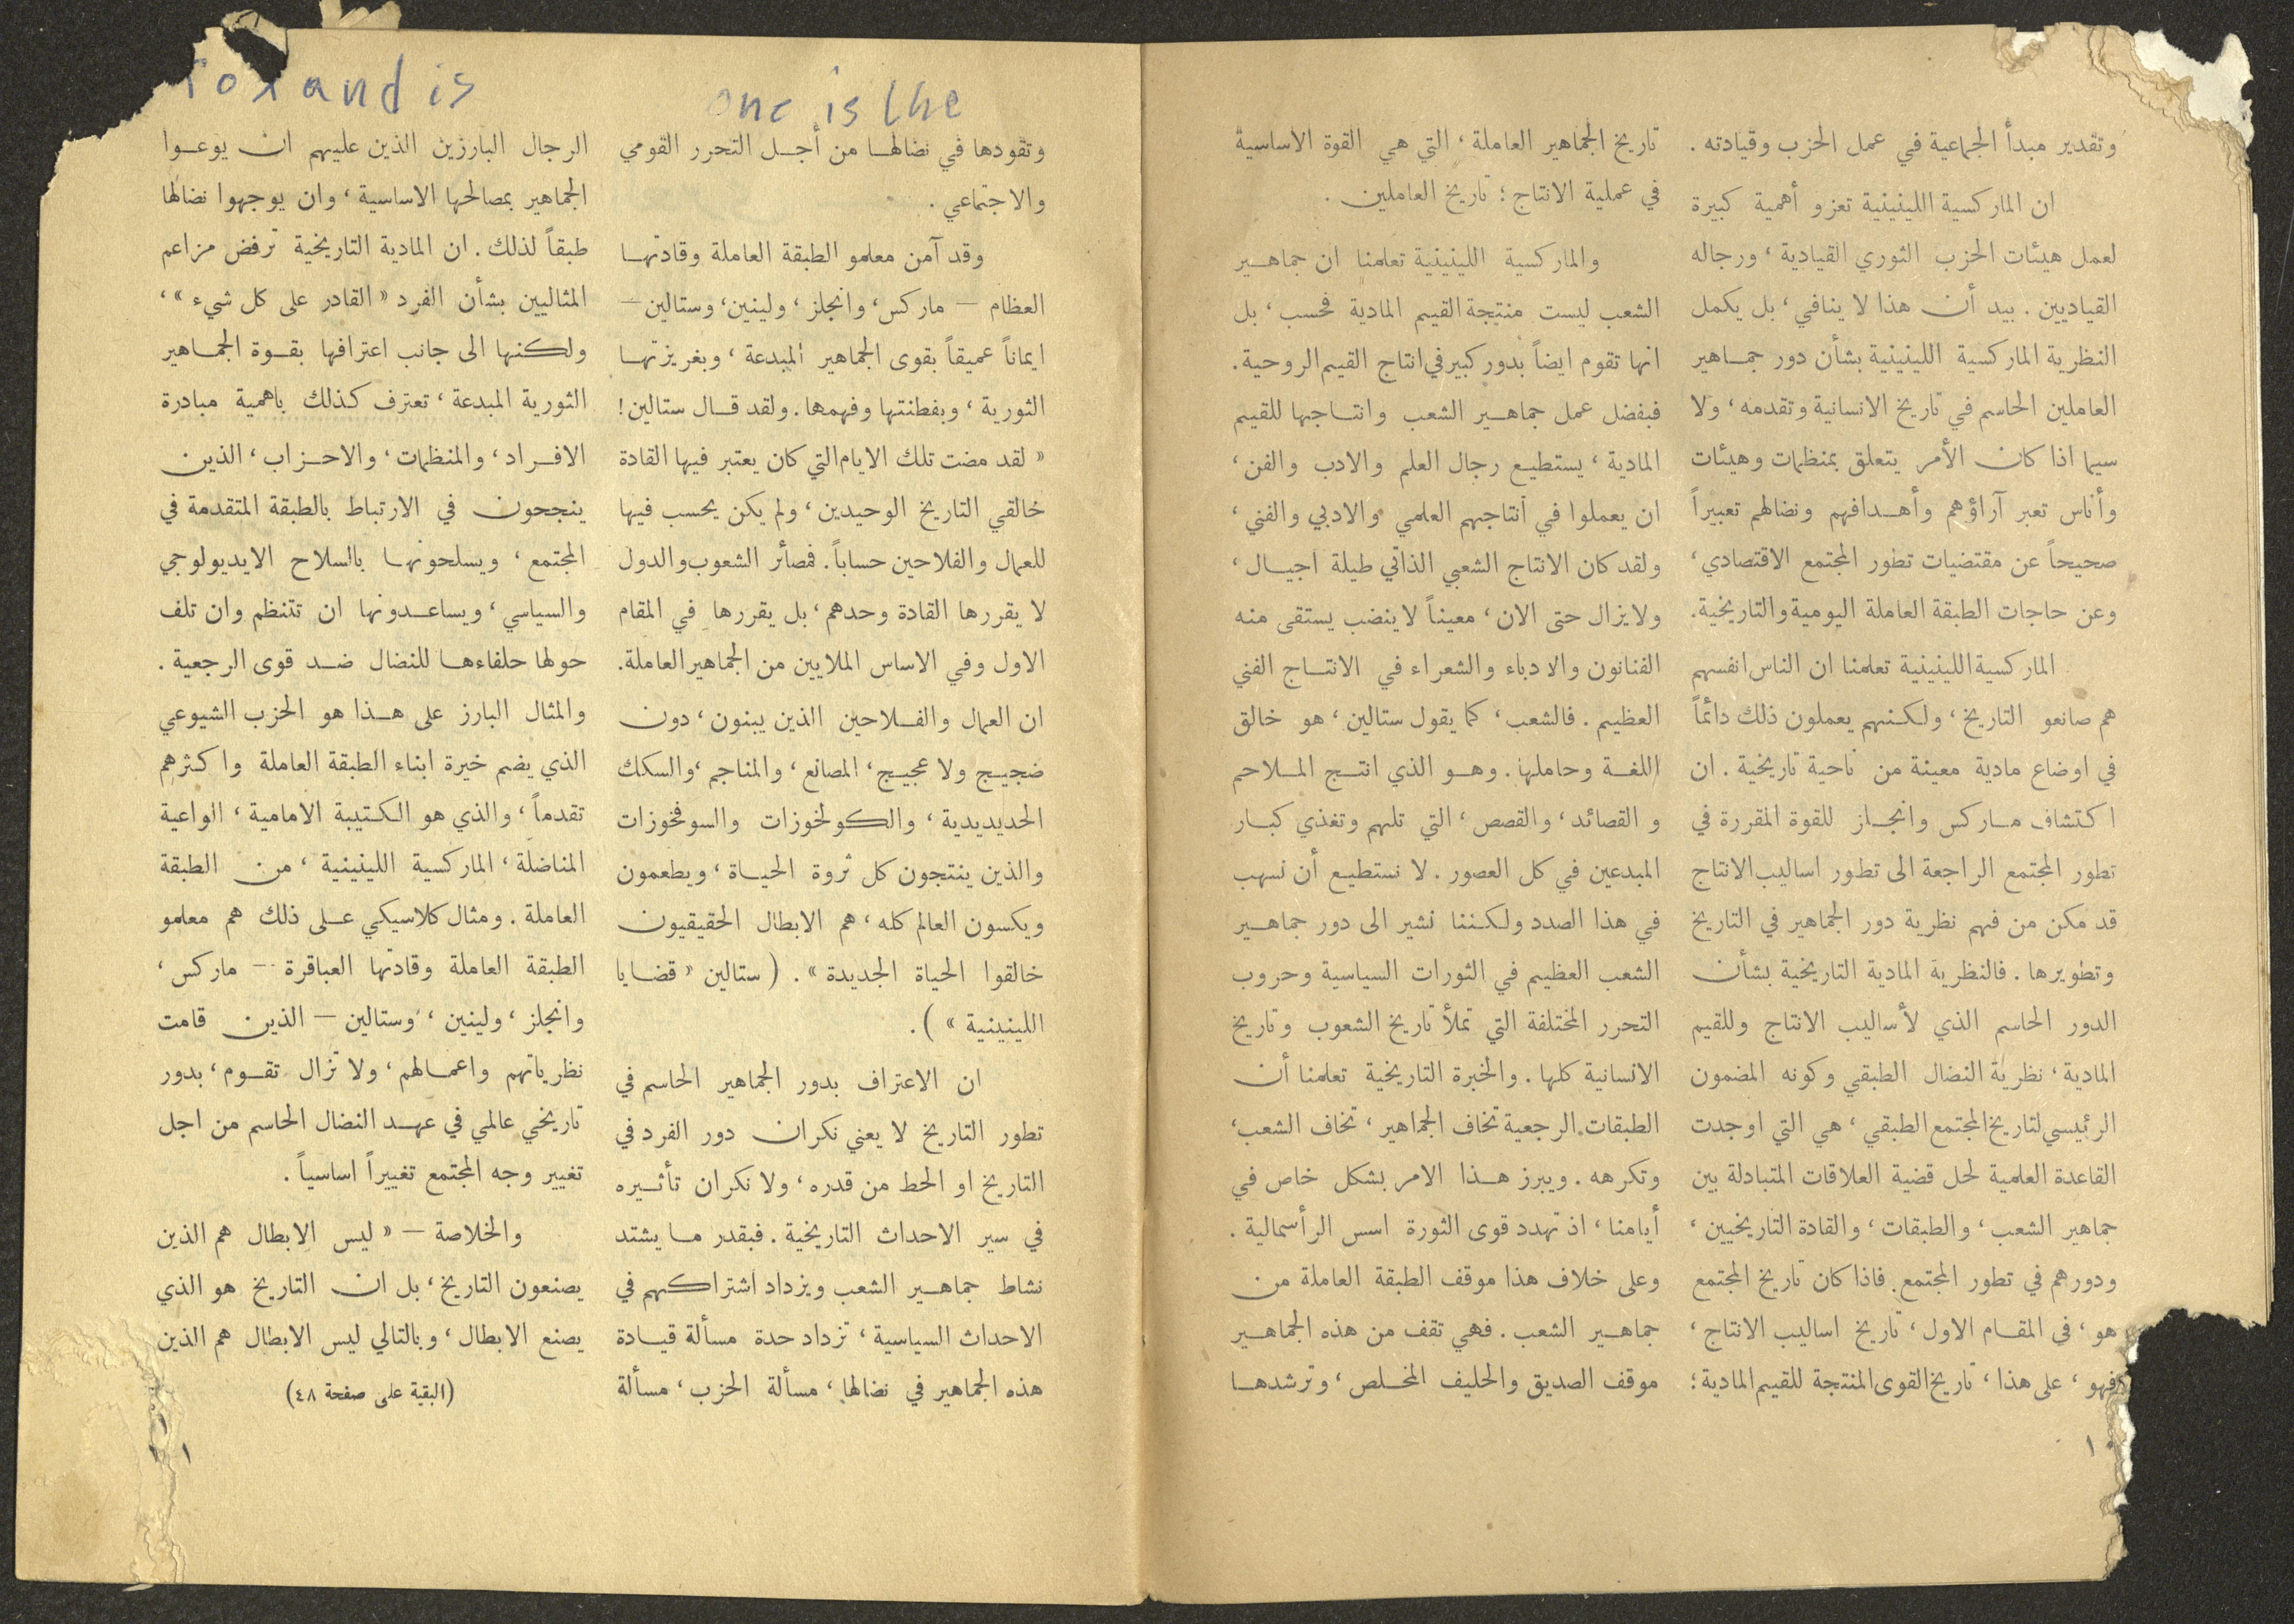 وتقدير مبدأ الجماعية في عمل الحزب وقيادته .
ان الماركسية اللينينية تعزو أهمية كبيرة
لعمل هيئات الحزب الثوري القيادية ، ورجاله
القياديين . بيد أن هذا لا ينافي ، بل يكمل
النظرية الماركسية اللينينية بشأن دور جماهير
العاملين الحاسم في تاريخ الانسانية وتقدمه ، ولا
سيما اذا كان الأمر يتعلق بمنظمات وهيئات
وأناس تعبر آراؤهم وأهدافهم ونضالهم تعبيراً
صحيحاً عن مقتضيات تطور المجتمع الاقتصادي ،
وعن حاجات الطبقة العاملة اليومية والتاريخية .
الماركسية اللينينية تعلمنا ان الناس انفسهم
هم صانعو التاريخ ، ولكنهم يعملون ذلك دائماً
في اوضاع مادية معينة من ناحية تاريخية . ان
اكتشاف ماركس وانجلز للقوة المقررة في
تطور المجتمع الراجعة الى تطور اساليب الانتاج
قد مكن من فهم نظرية دور الجماهير في التاريخ
وتطويرها . فالنظرية المادية التاريخية بشأن
الدور الحاسم الذي لأساليب الانتاج وللقيم
المادية ، نظرية النضال الطبقي وكونه المضمون
الرئيسي لتاريخ المجتمع الطبقي ، هي التي اوجدت
القاعدة العلمية لحل قضية العلاقات المتبادلة بين
جماهير الشعب ، والطبقات ، والقادة التاريخيين ،
ودورهم في تطور المجتمع . فاذا كان تاريخ المجتمع
هو ، في المقام الاول ، تاريخ اساليب الانتاج ،
فهو ، على هذا ، تاريخ القوى المنتجة للقيم المادية ؛
تاريخ الجماهير العاملة ، التي هي القوة الاساسية
في عملية الانتاج ؛ تاريخ العاملين .
والماركسية اللينينية تعلمنا ان جماهير
الشعب ليست منتجة القيم المادية فحسب ، بل
انها تقوم ايضاً بدور كبير في انتاج القيم الروحية .
فبفضل عمل جماهير الشعب وانتاجها للقيم
المادية ، يستطيع رجال العلم والادب والفن ،
ان يعملوا في انتاجهم العلمي والادبي والفني ،
ولقد كان الانتاج الشعبي الذاتي طيلة اجيال ،
ولا يزال حتى الان ، معيناً لا ينضب يستقى منه
الفنانون والادباء والشعراء في الانتاج الفني
العظيم . فالشعب ، كما يقول ستالين ، هو خالق
اللغة وحاملها . وهو الذي انتج الملاحم
و القصائد ، والقصص ، التي تلهم وتغذي كبار
المبدعين في كل العصور . لا نستطيع أن نسهب
في هذا الصدد ولكننا نشير الى دور جماهير
الشعب العظيم في الثورات السياسية وحروب
التحرر المختلفة التي تملأ تاريخ الشعوب وتاريخ
الانسانية كلها . والخبرة التاريخية تعلمنا أن
الطبقات الرجعية تخاف الجماهير ، تخاف الشعب ،
وتكرهه . ويبرز هذا الامر بشكل خاص في
أيامنا ، اذ تهدد قوى الثورة اسس الرأسمالية .
وعلى خلاف هذا موقف الطبقة العاملة من
جماهير الشعب . فهي تقف من هذه الجماهير
موقف الصديق والحليف المخلص ، وترشدها
١٠
one is the
and is
وتقودها في نضالها من أجل التحرر القومي
والاجتماعي .
وقد آمن معلمو الطبقة العاملة وقادتها
العظام — ماركس ، وانجلز ، ولينين ، وستالين —
ايماناً عميقاً بقوى الجماهير المبدعة ، وبغريزتها
الثورية ، وبفطنتها وفهمها . ولقد قال ستالين !
« لقد مضت تلك الايام التي كان يعتبر فيها القادة
خالقي التاريخ الوحيدين ، ولم يكن يحسب فيها
للعمال والفلاحين حساباً . فمصائر الشعوب والدول
لا يقررها القادة وحدهم ، بل يقررها في المقام
الاول وفي الاساس الملايين من الجماهير العاملة .
ان العمال والفلاحين الذين يبنون ، دون
ضجيج ولا عجيج ، المصانع ، والمناجم ، والسكك
الحديديدية ، والكولخوزات والسوفخوزات
والذين ينتجون كل ثروة الحياة ، ويطعمون
ويكسون العالم كله ، هم الابطال الحقيقيون
خالقوا الحياة الجديدة » . ( ستالين « قضايا
اللينينية » ) .
ان الاعتراف بدور الجماهير الحاسم في
تطور التاريخ لا يعني نكران دور الفرد في
التاريخ او الحط من قدره ، ولا نكران تأثيره
في سير الاحداث التاريخية . فبقدر ما يشتد
نشاط جماهير الشعب ويزداد اشتراكهم في
الاحداث السياسية ، تزداد حدة مسألة قيادة
هذه الجماهير في نضالها ، مسألة الحزب ، مسألة
الرجال البارزين الذين عليهم ان يوعوا
الجماهير بمصالحها الاساسية ، وان يوجهوا نضالها
طبقاً لذلك . ان المادية التاريخية ترفض مزاعم
المثاليين بشأن الفرد « القادر على كل شيء » ،
ولكنها الى جانب اعترافها بقوة الجماهير
الثورية المبدعة ، تعترف كذلك باهمية مبادرة
الافراد ، والمنظمات ، والاحزاب ، الذين
ينجحون في الارتباط بالطبقة المتقدمة في
المجتمع ، ويسلحونها بالسلاح الايديولوجي
والسياسي ، ويساعدونها ان تتنظم وان تلف
حولها حلفاءها للنضال ضد قوى الرجعية .
والمثال البارز على هذا هو الحزب الشيوعي
الذي يضم خيرة ابناء الطبقة العاملة واكثرهم
تقدماً ، والذي هو الكتيبة الامامية ، الواعية
المناضلة ، الماركسية اللينينية ، من الطبقة
العاملة . ومثال كلاسيكي على ذلك هم معلمو
الطبقة العاملة وقادتها العباقرة — ماركس ،
وانجلز ، ولينين ، وستالين — الذين قامت
نظرياتهم واعمالهم ، ولا تزال تقوم ، بدور
تاريخي عالمي في عهد النضال الحاسم من اجل
تغيير وجه المجتمع تغييراً اساسياً .
والخلاصة — « ليس الابطال هم الذين
يصنعون التاريخ ، بل ان التاريخ هو الذي
يصنع الابطال ، وبالتالي ليس الابطال هم الذين
(البقية على صفحة ٤٨)
١١